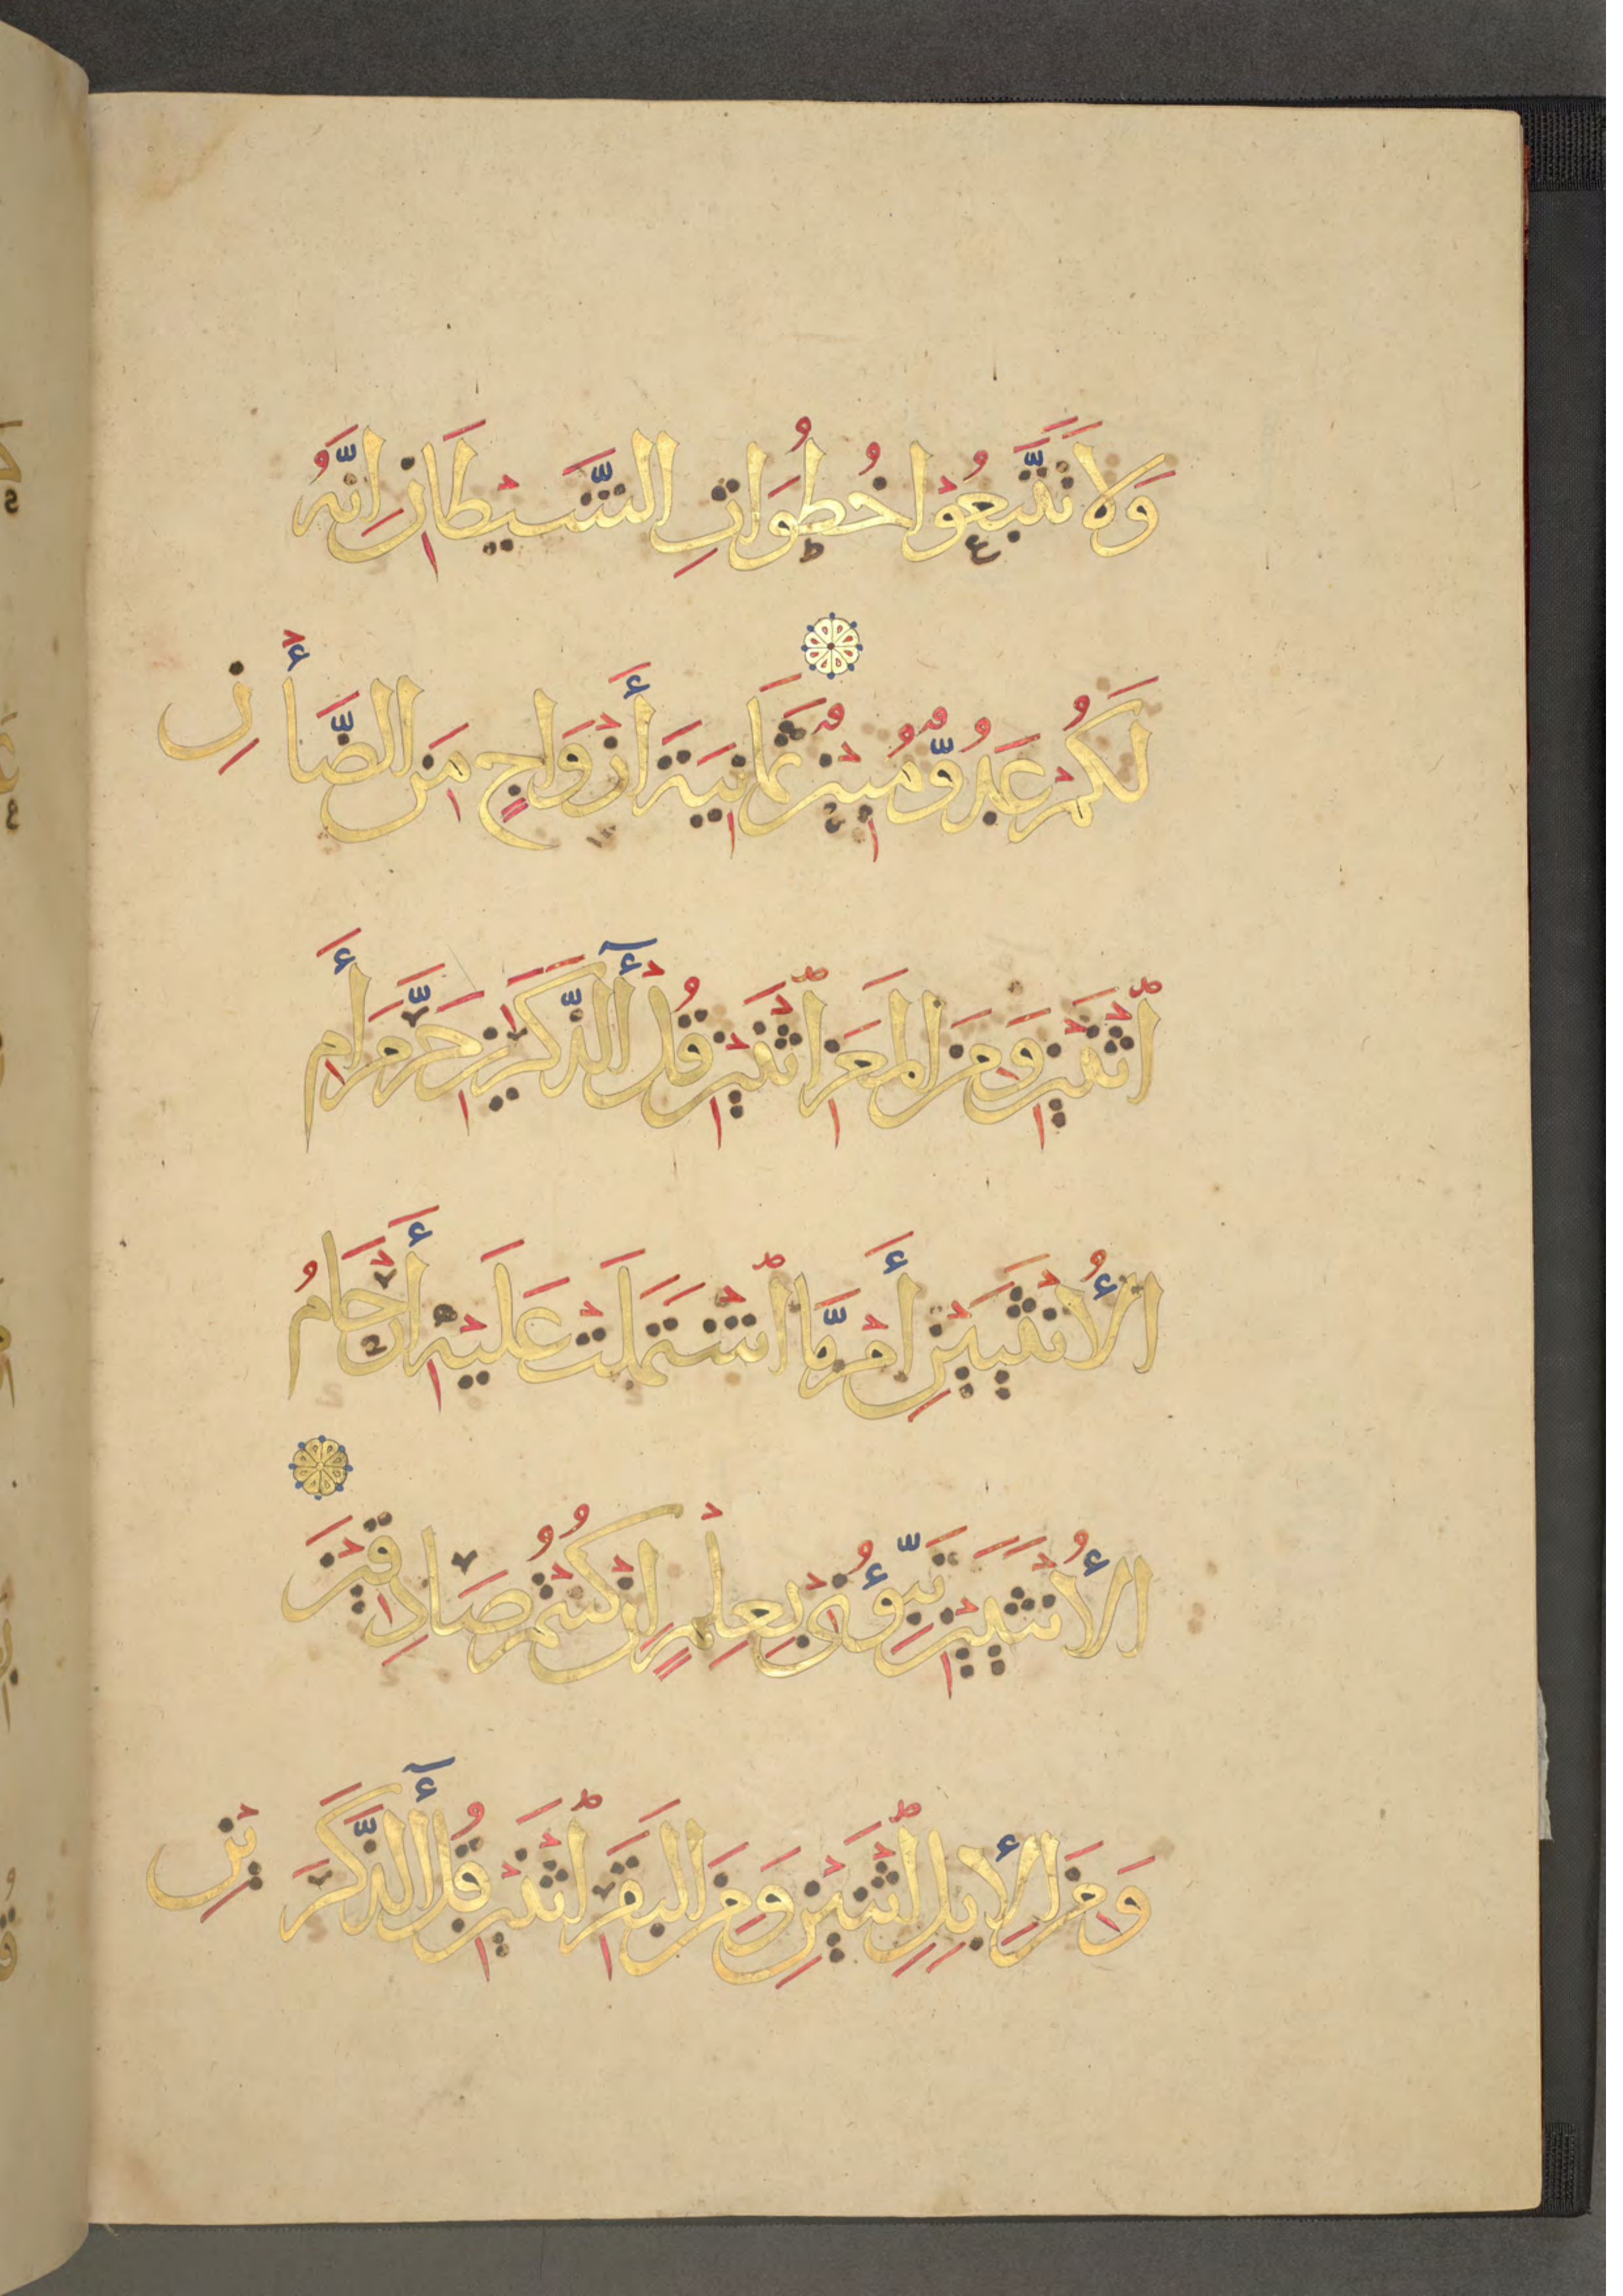 وَلَا تَتَّبِعُوْا خُطُوَاتِ الشَّيْطَانِ اِنَّهُ
لَكُمْ عَدُوٌّ مُبِيْنٌ ثَمَانِيَةَ أَزْوَاجٍ مِنَ الضَّأْنِ
اثْنَيْنِ وَمِنَ المَعَزِ اثْنَيْنِ قُلْ أٓلذَّكَرَيْنِ حَرَّمَ أَمِ
الأُنْثَيَيْنِ أَمْ مَّا اشْتَمَلَتْ عَلَيْهِ أَرْحَامُ
الأُنْثَيَيْنِ نَبِّؤُنِيْ بِعِلْمٍ اِنْ كُنْتُمْ صَادِقِيْنَ
وَمِنَ الإِبِلِ اثْنَيْنِ وَمِنَ البَقَرِ اثْنَيْنِ قُلْ أٓلذَّكَرَيْنِ